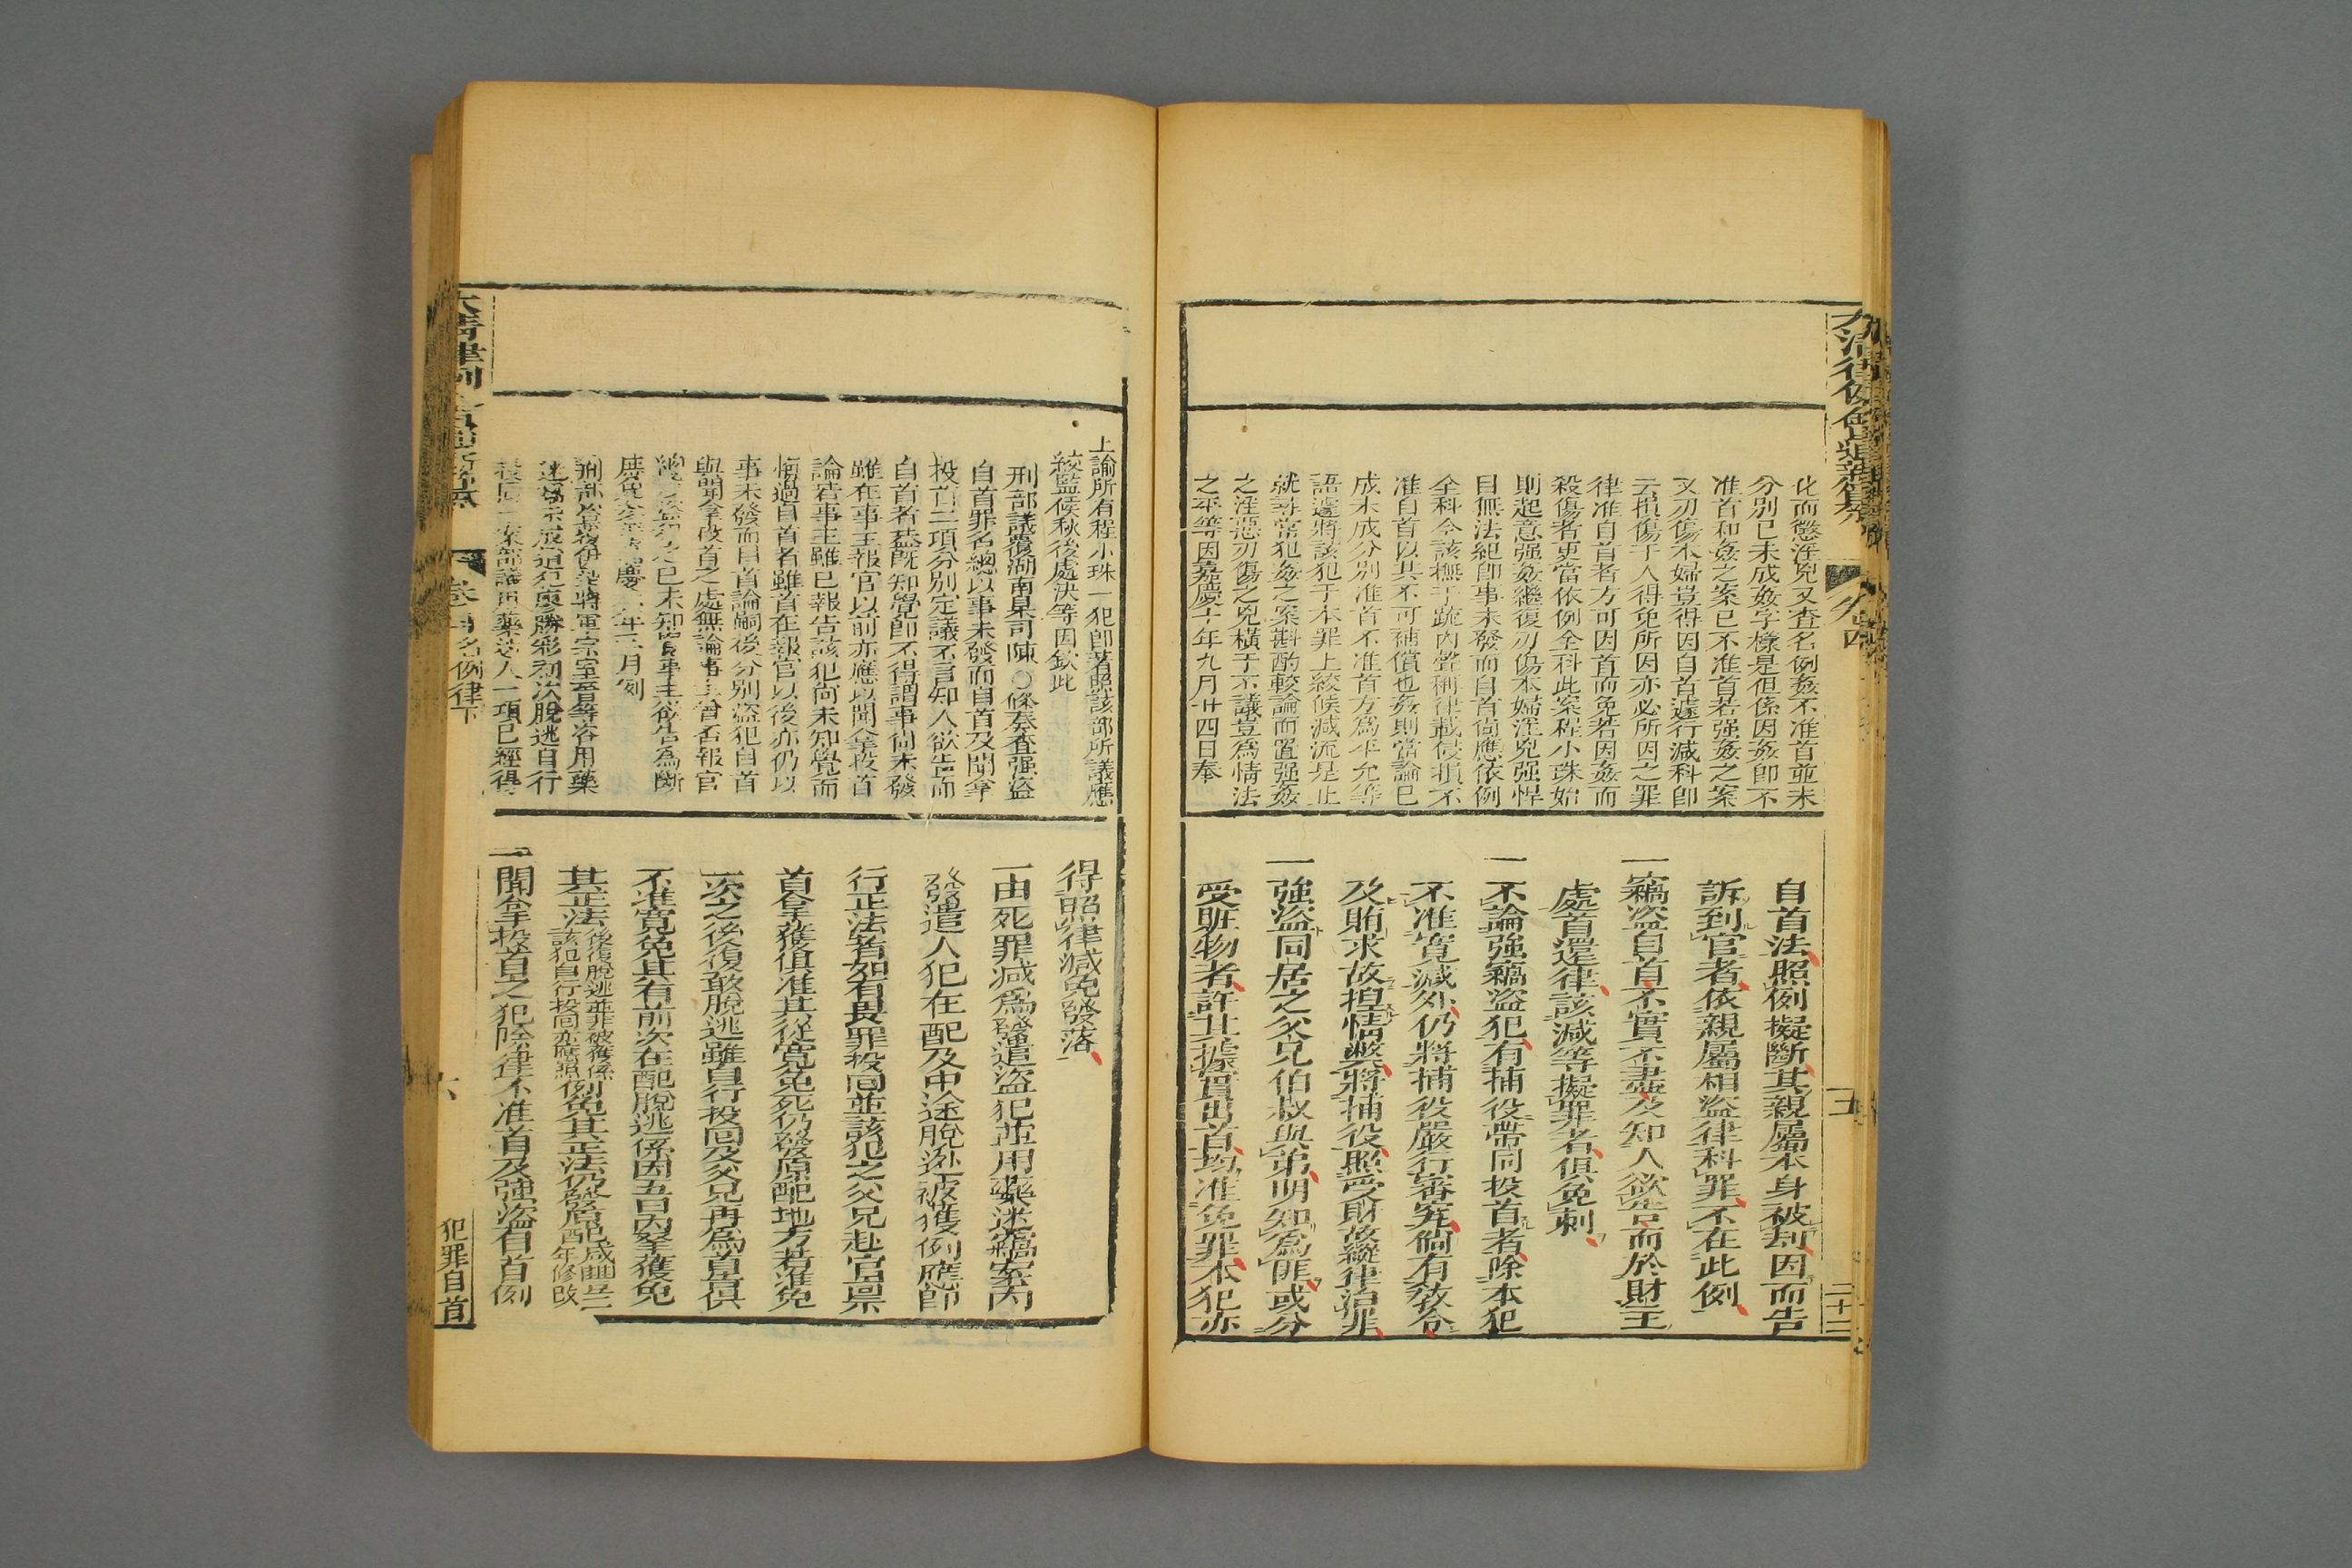 化而懲淫兇又查名例姦不准首並未
分別已未成姦字樣是但係因姦卽不
准首和姦之案已不准首若强姦之案
又刃傷本婦豈得因自首遽行減科卽
云損傷于人得免所因亦必所因之罪
律准自首者方可因首而免若因姦而
殺傷者更當依例全科此案程小珠始
則起意强姦繼復刃傷本婦淫兇强悍
目無法紀卽事未發而自首尚應依例
全科今該撫于疏內聲稱律載侵損不
准自首以其不可補償也姦則當論已
成未成分別准首不准首方爲平允等
語遽將該犯于本罪上絞候減流是止
就尋常犯姦之案斟酌較論而置强姦
之淫惡刃傷之兇橫于不議豈爲情法
之平等因嘉慶十年九月廿四日奉
自首法照例擬斷其親屬本身被刦因而告
訴到官者依親屬相盜律科罪不在此例
一竊盜自首不實不盡及知人欲告而於財主
處首還律該減等擬罪者俱免刺
一不論强竊盜犯有捕役帶同投首者除本犯
不准寬減外仍將捕役嚴行審究倘有教令
及賄求故揑情弊將捕役照受財故縱律治罪
一強盜同居之父兄伯叔與弟明知爲匪或分
受賍物者許其據實出首均准免罪本犯亦
二十二
上諭所有程小珠一犯卽著照該部所議應
絞監候秋後處決等因欽此
刑部議覆湖南臬司陳〇條奏查强盜
自首罪名總以事未發而自首及聞拿
投首二項分別定議不言知人欲告而
自首者葢旣知覺卽不得謂事尚未發
雖在事主報官以前亦應以聞拿投首
論若事主雖已報告該犯尚未知覺而
悔過自首者雖首在報官以後亦仍以
事未發而自首論嗣後分別盜犯自首
與聞拿投首之處無論事主曾否報官
已未知覺事主欲告爲斷
年三月例
將軍宗室晉等咨用藥
初次脫逃自行
案部議用藥迷人一項已經得
得照律減免發落
一由死罪減爲發遣盜犯並用藥迷竊案內
發遣人犯在配及中途脫逃被獲例應卽
行正法者如有畏罪投回並該犯之父兄赴官禀
首拿獲俱准其從寬免死仍發原配地方若准免
一次之後復敢脫逃雖自行投回及父兄再爲首俱
不准寬免其有前次在配脫逃係因五日內拏獲免
其正法後復脫逃並非被獲係
該犯自行投回亦應照例免其正法仍發原配咸豐二
年修改
一聞拿投首之犯除律不准首及强盜自首例
卷四名例律下
犯罪自首